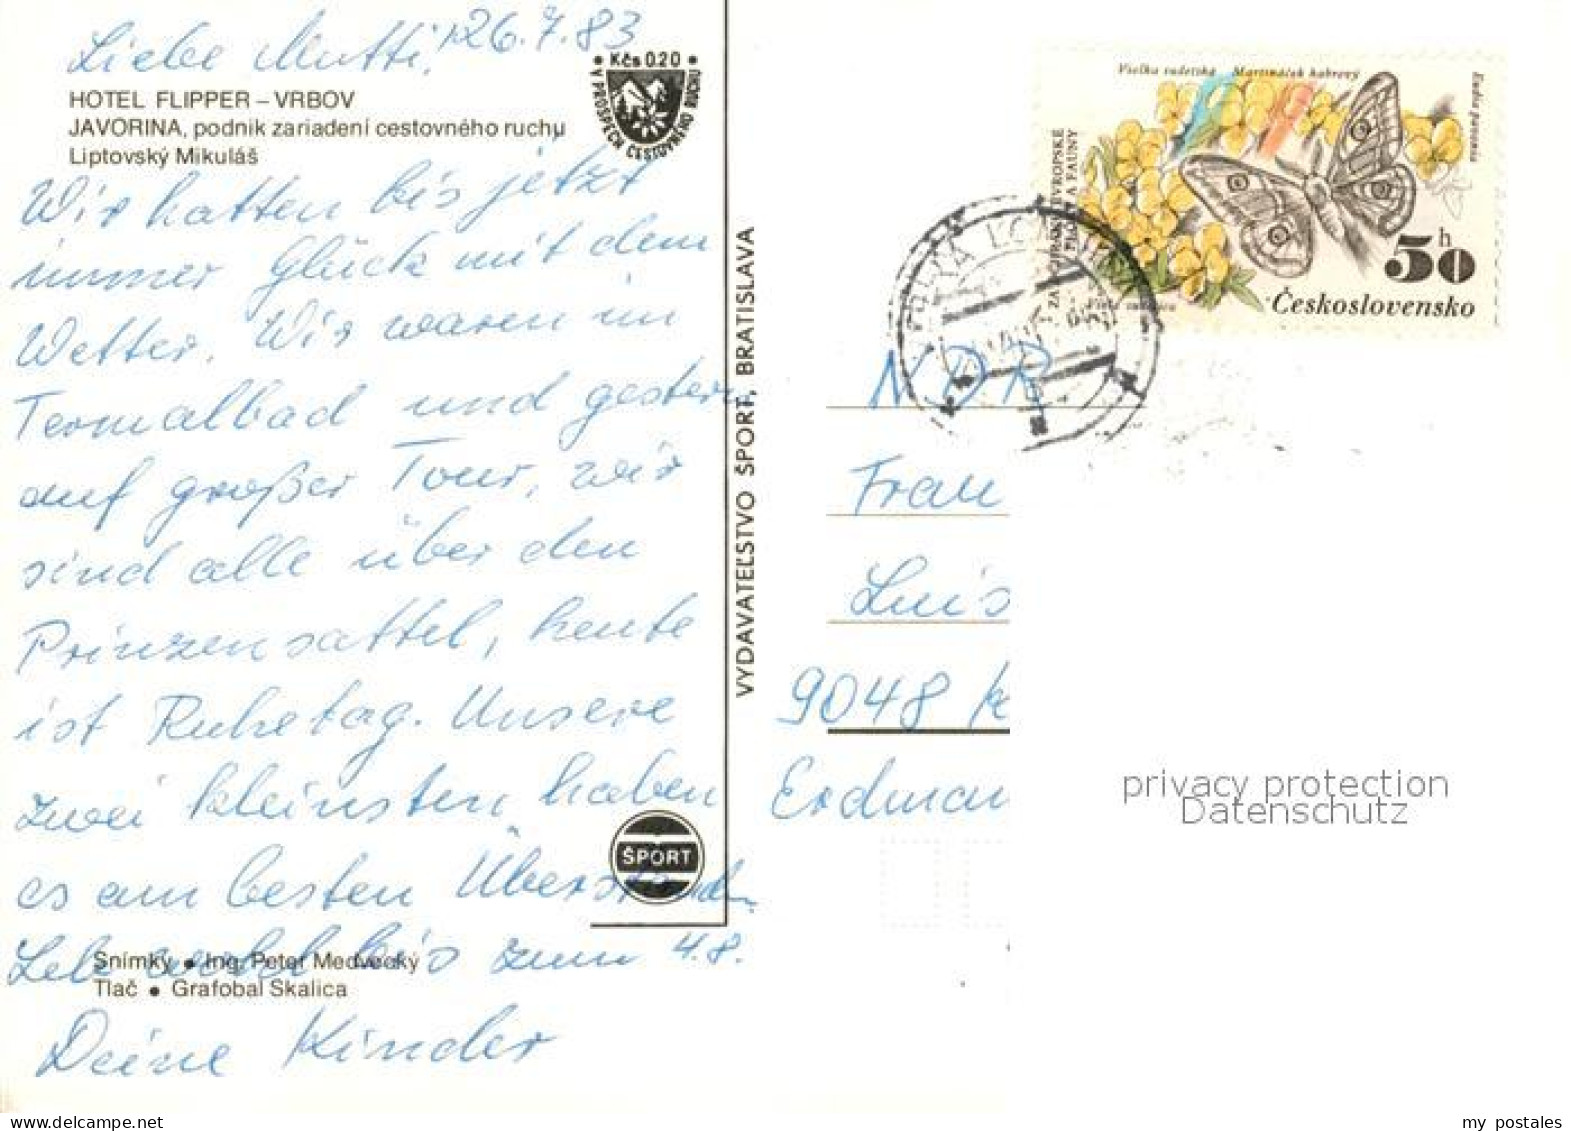 Liebe Mutti, 26.7.83
HOTEL FLIPPER – VRBOV
JAVORINA, podnik zariadení cestovného ruchu
Liptovský Mikuláš
Kčs 0.20
V PROSPECH CESTOVNÉHO RUCHU
Wir hatten bis jetzt
immer Glück mit dem
Wetter. Wir waren im
Termalbad und gestern
auf großer Tour, wir
sind alle über den
Prinzensattel, heute
ist Ruhetag. Unsere
zwei kleinsten haben
es am besten Überstanden.
Lebt wohl bis zum 4.8.
Deine Kinder
Snímky • Ing. Peter Medvecký
Tlač • Grafobal Skalica
ŠPORT
VYDAVATEĽSTVO ŠPORT, BRATISLAVA
Violka sudetská Martináček habrový
Eudia pavonia
50 h
Československo
NDR
Frau
Luis
9048 K
Erdman
privacy protection
Datenschutz
my postales